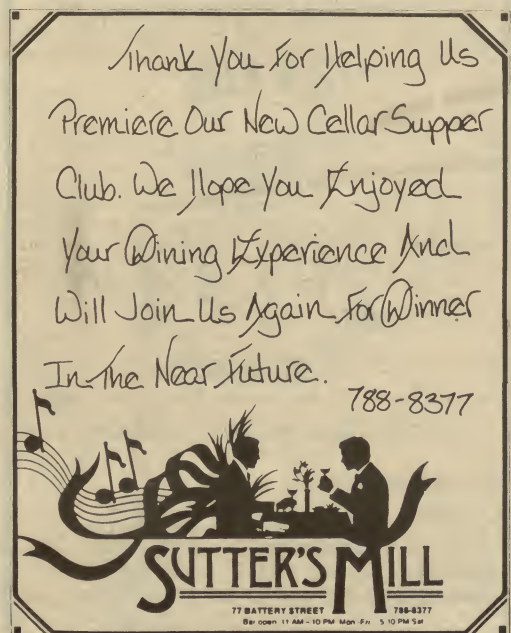 Thank You For Helping Us
Premiere Our New Cellar Supper
Club. We Hope You Enjoyed
Your Dining Experience And
Will Join Us Again For Dinner
In The Near Future.
788-8377
SUTTER'S MILL
77 BATTERY STREET 788-8377
Bar open 11 AM - 10 PM Mon-Fri 5-10 PM Sat